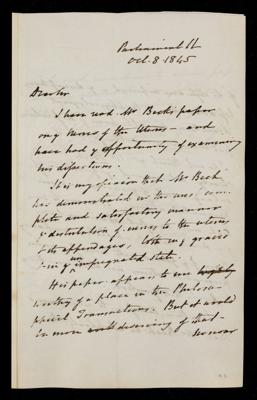 Parliament St
Oct. 8. 1845
Dear Sir
I have read Mr Beck's paper
on ye Nerves of the Uterus - and
have had ye opportunity of examining
his dissections.
It is my opinion that Mr Beck
has demonstrated in the most com-
plete and satisfactory manner
ye distribution of nerves to the uterus
& its appendages, both in ye gravid
& in ye unimpregnated state.
His paper appears to me
worthy of a place in the Philoso-
phical Transactions. But it would
be more deserving of that
honour